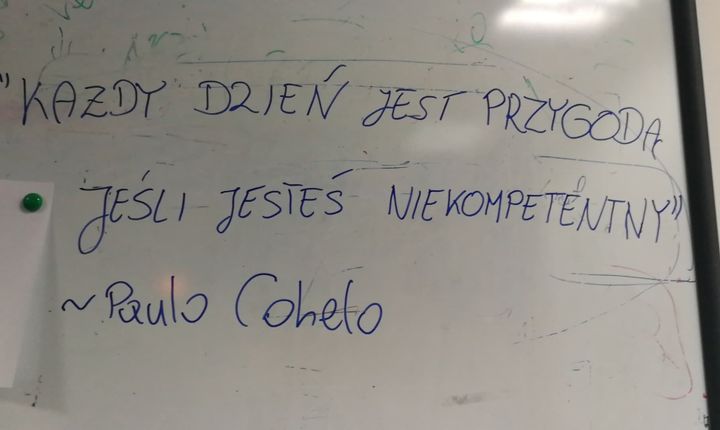 "KAZDY DZIEŃ JEST PRZYGODĄ
JEŚLI JESTEŚ NIEKOMPETENTNY"
~ Paulo Cohelo